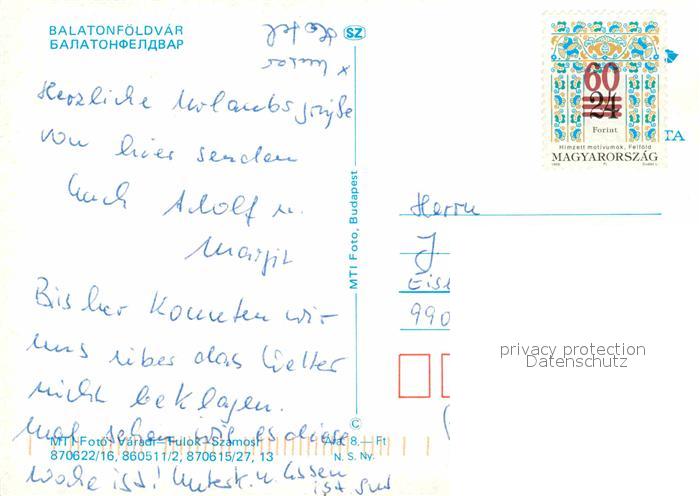 BALATONFÖLDVÁR
БАЛАТОНФЕЛДВАР
SZ
Herzliche Urlaubsgrüße
von hier senden
Euch Adolf u.
Margit
Bisher konnten wir
uns über das Wetter
nicht beklagen.
Mal sehen wie es diese
Woche ist! Unterk. u. Essen
ist gut
MTI Foto: Váradi–Tulok–Szamosi
Ára: 8,— Ft
870622/16, 860511/2, 870615/27, 13
N. S. Ny.
MTI Foto, Budapest
60
24
Forint
Hímzett motívumok, Felföld
MAGYARORSZÁG
TA
Herrn
J
Eise
990
privacy protection
Datenschutz